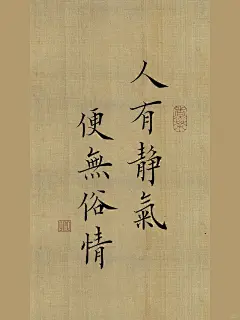 人有静氣
便無俗情